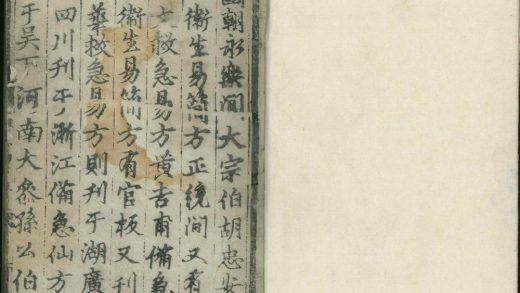 國朝永樂間大宗伯胡忠安
衛生易簡方正統間又有
救急易方黃吉甫備急
衛生易簡方有官板又刊
華救急易方則刊于湖廣
四川刊于浙江備急仙方
于吳下河南大參孫公伯